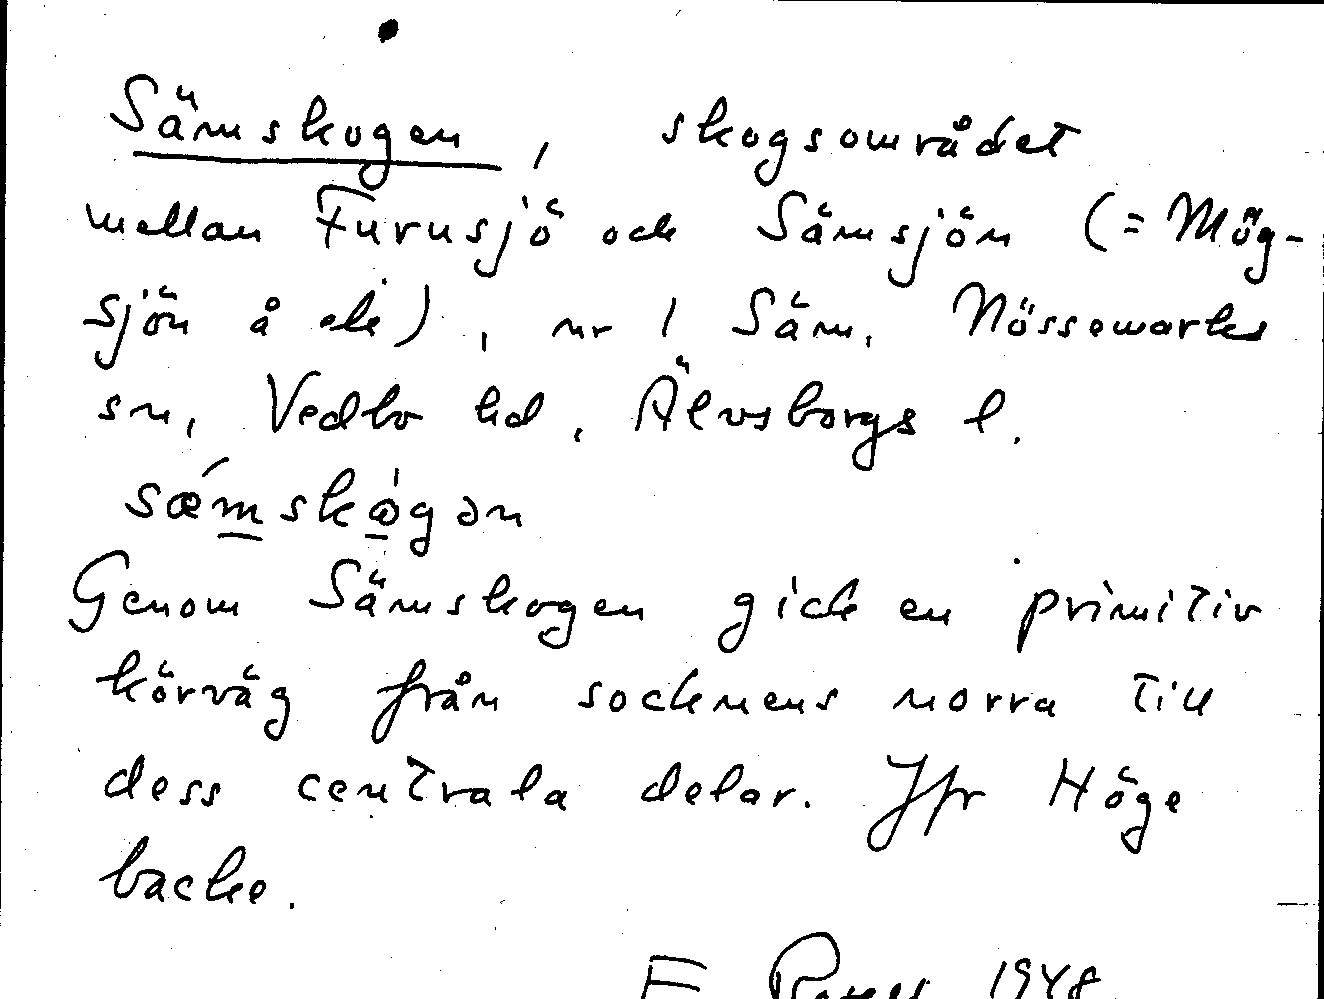 Sämskogen, skogsområdet
mellan Furusjö och Sämsjön (= Mög-
sjön å ek), nr 1 Säm, Nössemarks
sn, Vedbo hd, Älvsborgs l.
sǽmskògən
Genom Sämskogen gick en primitiv
körväg från socknens norra till
dess centrala delar. Jfr Höge
backe.
E 1948